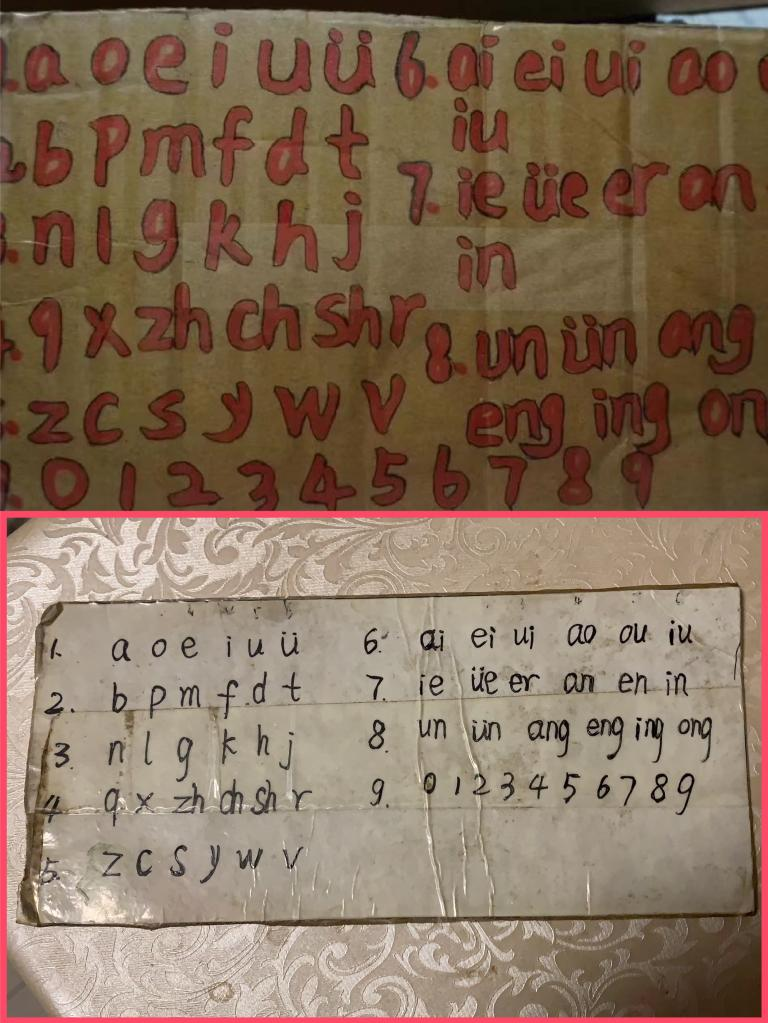 a o e i u ü 6. ai ei ui ao
b p m f d t iu
7. ie üe er an
n l g k h j in
q x zh ch sh r 8. un ün ang
z c s y w v eng ing on
0 1 2 3 4 5 6 7 8 9
1. a o e i u ü 6. ai ei ui ao ou iu
2. b p m f d t 7. ie üe er an en in
3. n l g k h j 8. un ün ang eng ing ong
4. q x zh ch sh r 9. 0 1 2 3 4 5 6 7 8 9
5. z c s y w v